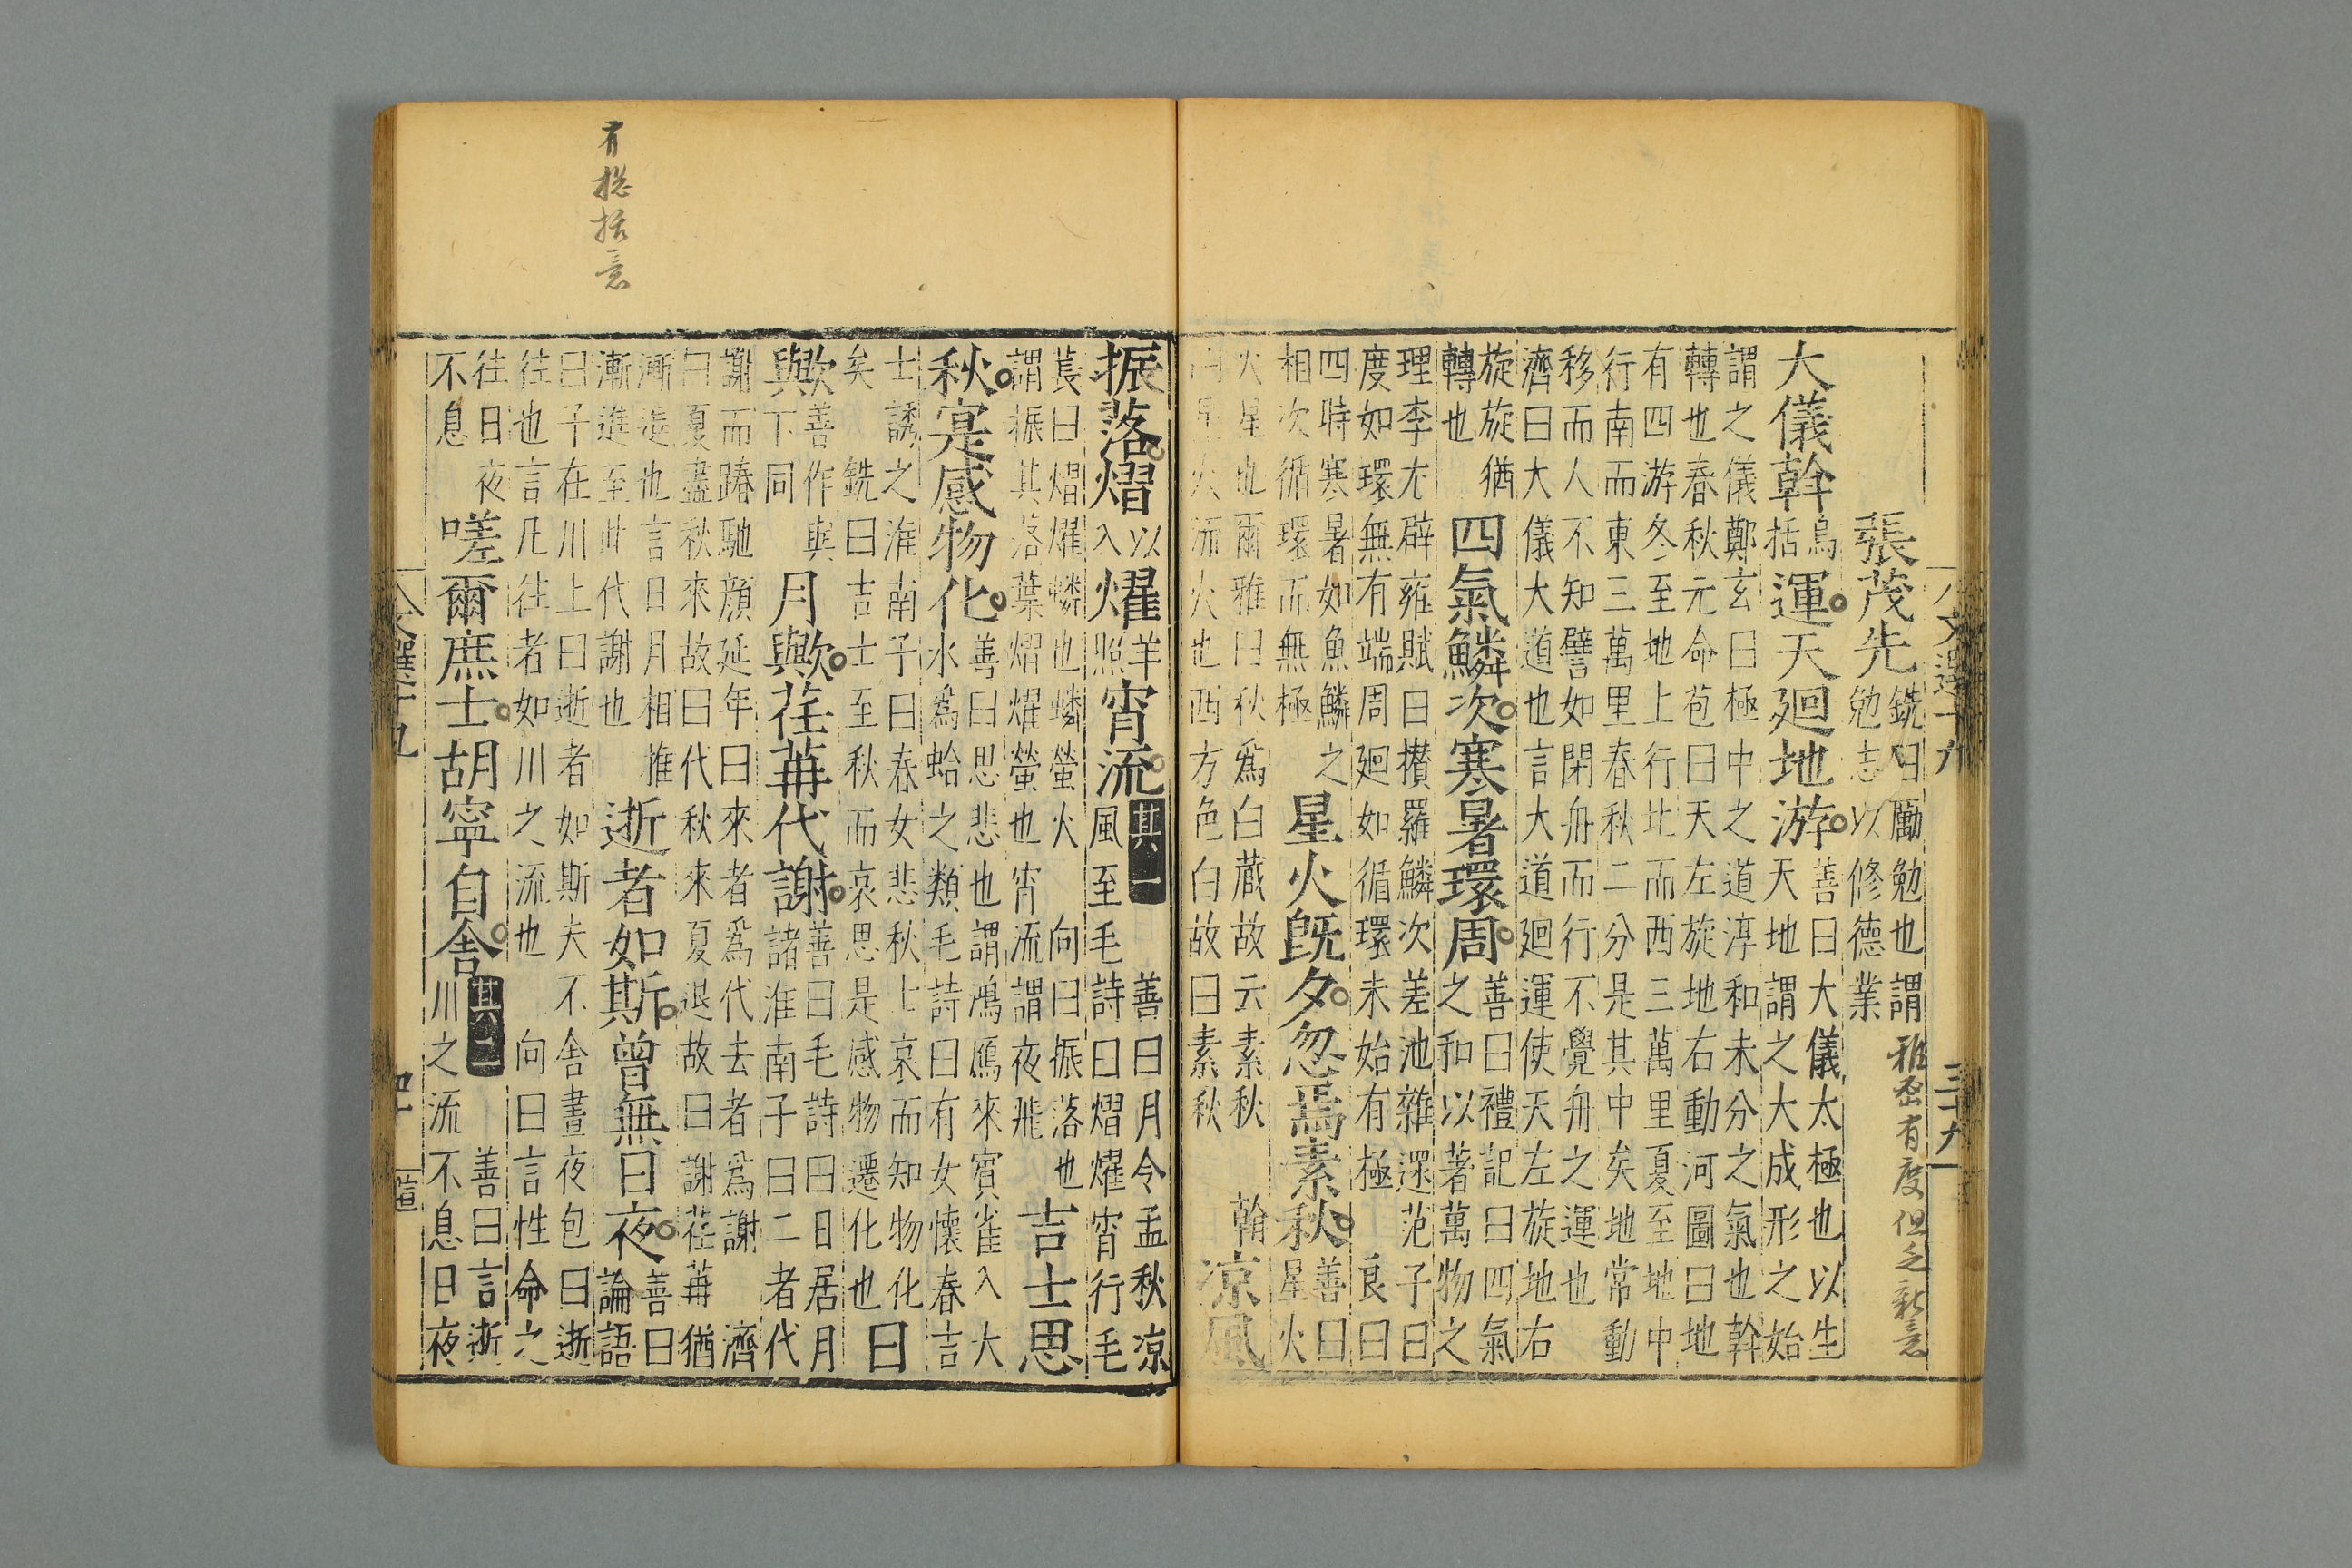 文選十九
三十九
張茂先
銑曰勵勉也謂
勉志以修德業
雅密有度但乏新意
大儀斡
烏
括
運天廻地游
善曰大儀太極也以生
天地謂之大成形之始
謂之儀鄭玄曰極中之道淳和未分之氣也斡
轉也春秋元命苞曰天左旋地右動河圖曰地
有四游冬至地上行北而西三萬里夏至地中
行南而東三萬里春秋二分是其中矣地常動
移而人不知譬如閉舟而行不覺舟之運也
濟曰大儀大道也言大道廻運使天左旋地右
旋旋猶
轉也
四氣鱗次寒暑環周
善曰禮記曰四氣
之和以著萬物之
理李尤辟雍賦曰攢羅鱗次差池雜遝范子曰
度如環無有端周廻如循環未始有極 良曰
四時寒暑如魚鱗之
相次循環而無極
星火旣夕忽焉素秋
善曰
星火
火星也爾雅曰秋爲白藏故云素秋 翰
曰星火流火也西方色白故曰素秋
涼風
振落熠
以
入
燿
羊
照
宵流
其一
善曰月令孟秋涼
風至毛詩曰熠燿宵行毛
萇曰熠燿蟒也蟒螢火 向曰振落也
謂振其落葉熠燿螢也宵流謂夜飛
吉士思
秋寔感物化
善曰思悲也謂鴻鴈來賓雀入大
水爲蛤之類毛詩曰有女懷春吉
士誘之淮南子曰春女悲秋士哀而知物化
矣 銑曰吉士至秋而哀思是感物遷化也
日
歟
善作與
與
下同
月歟荏苒代謝
善曰毛詩曰日居月
諸淮南子曰二者代
謝而踳馳顔延年曰來者爲代去者爲謝 濟
曰夏盡秋來故曰代秋來夏退故曰謝荏苒猶
漸進也言日月相推
漸進至此代謝也
逝者如斯曾無日夜
善曰
論語
曰子在川上曰逝者如斯夫不舍晝夜包曰逝
往也言凡往者如川之流也 向曰言性命之
往日夜
不息
嗟爾庶士胡寧自舍
其二
善曰言逝
川之流不息日夜
有總括意
文選十九
四十